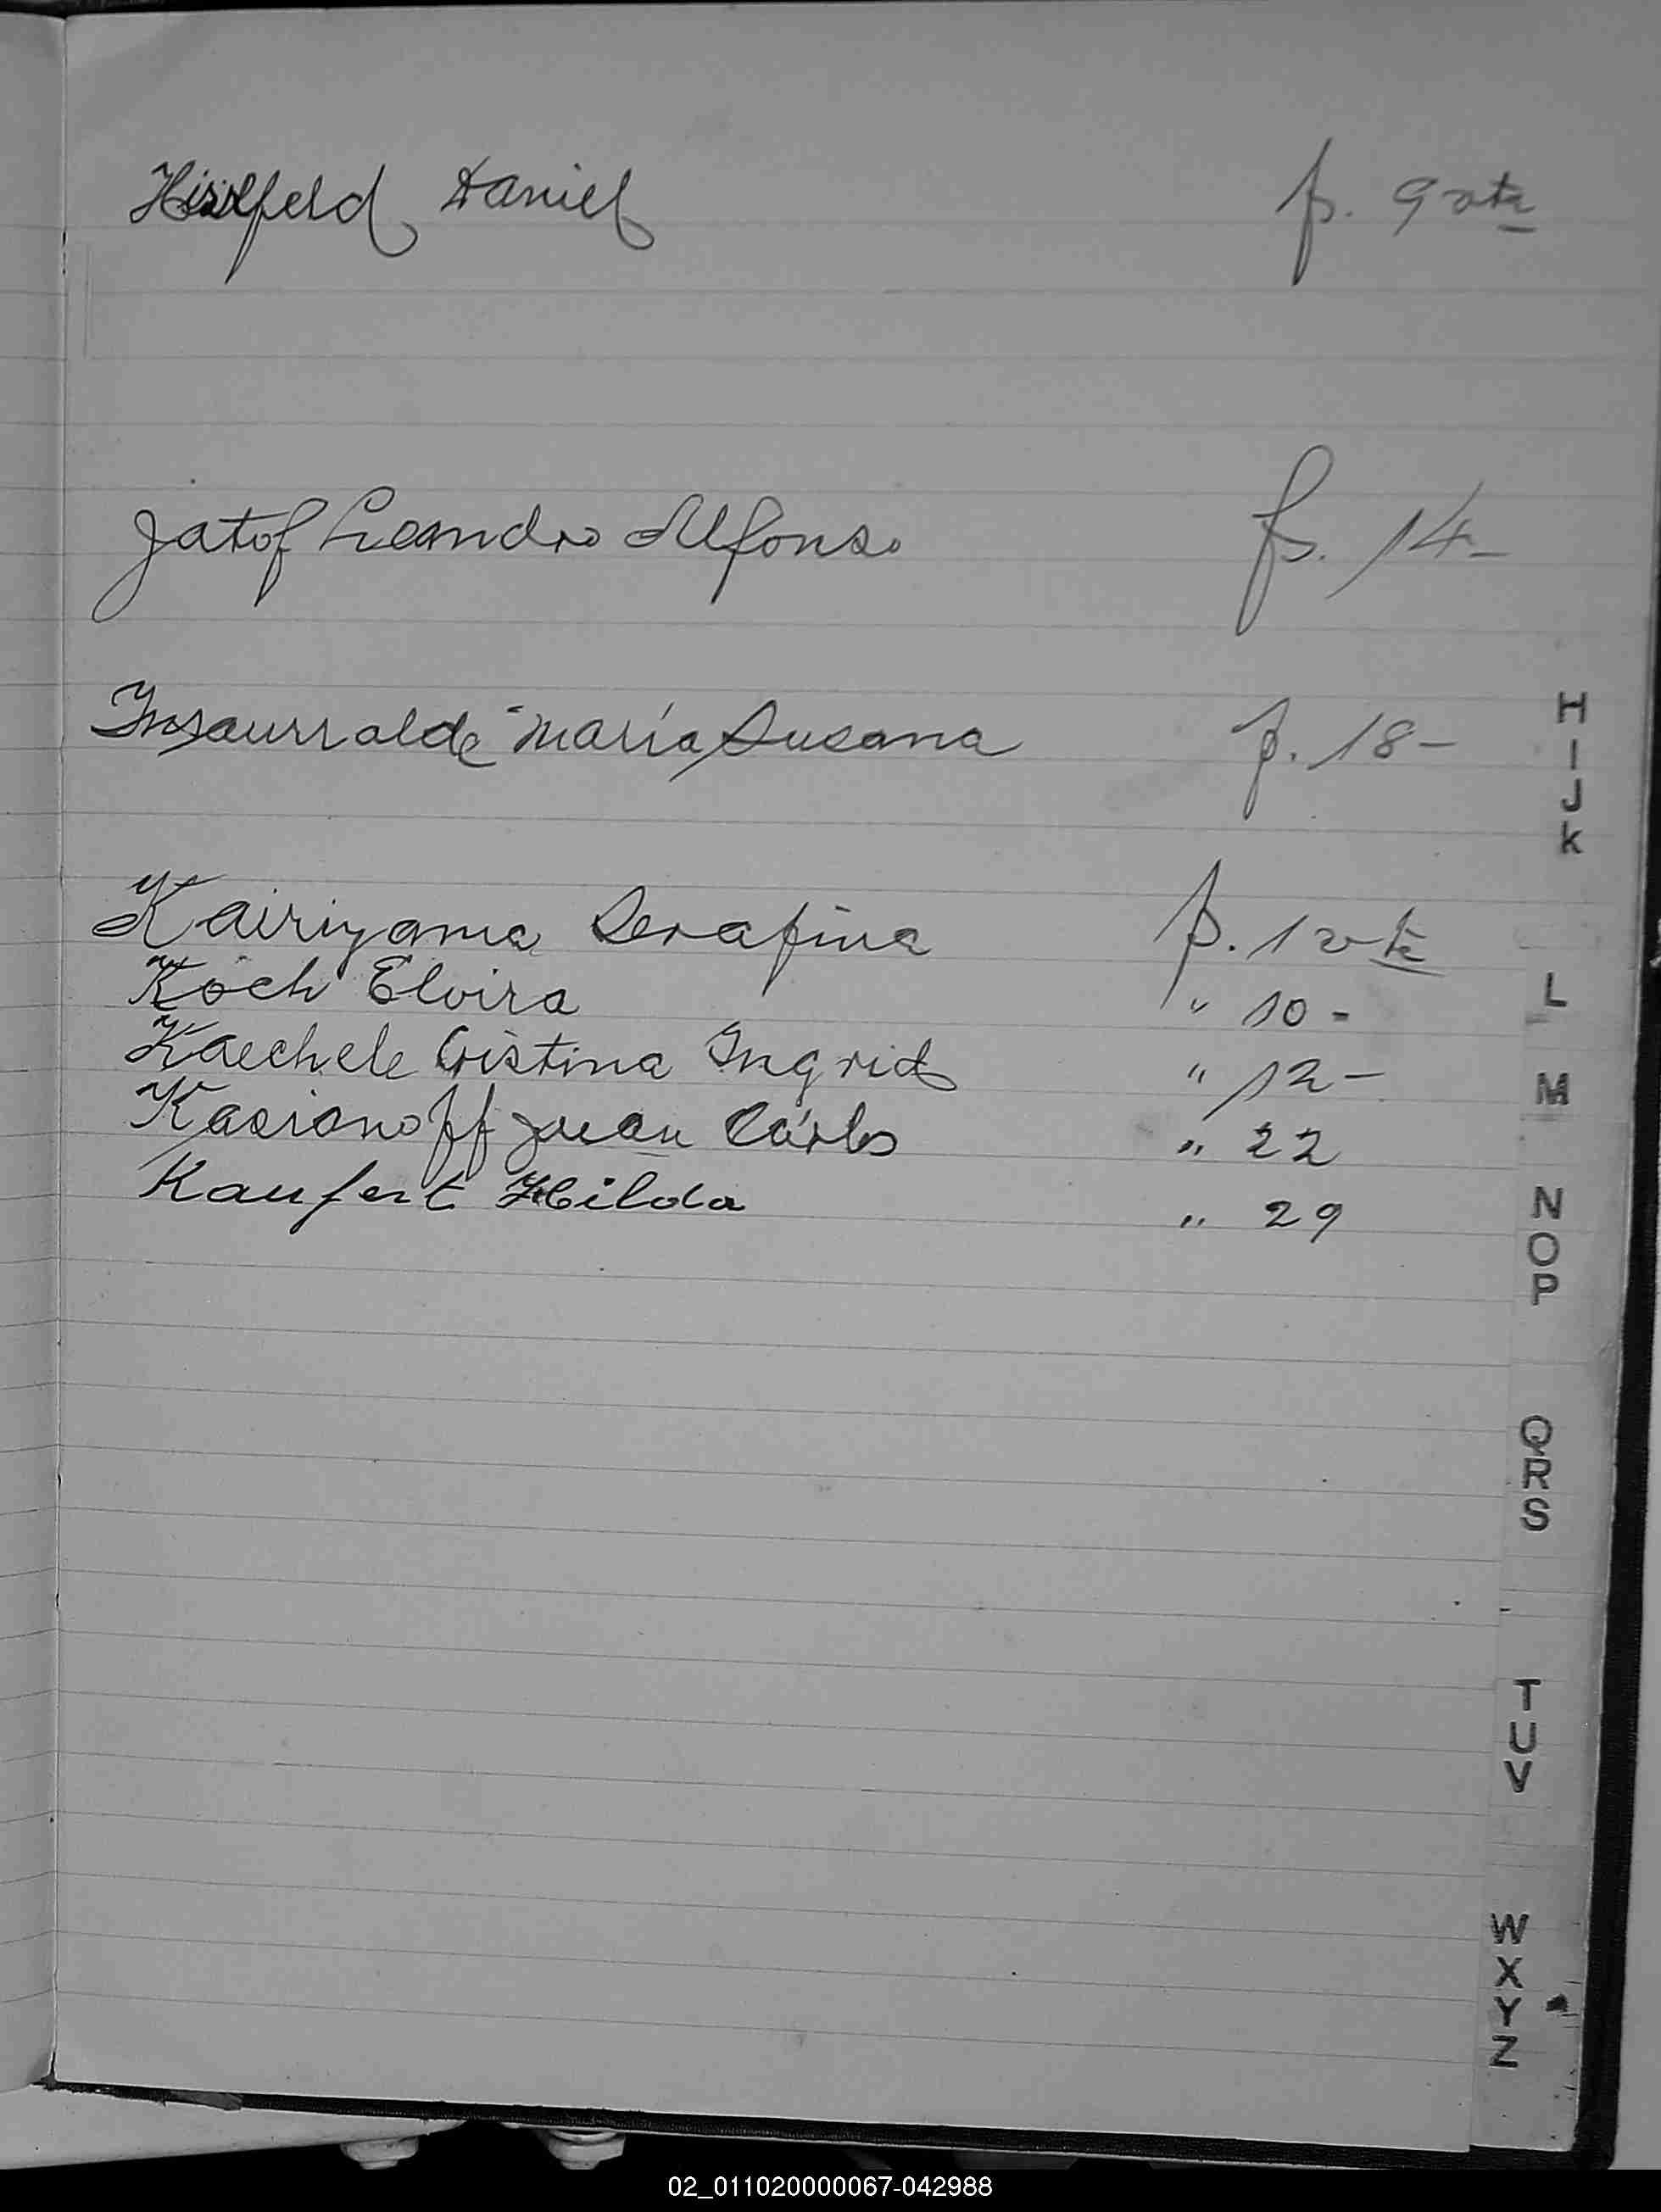 Daniel f. 9 vta
Jatof Leandro Alfonso f. 14-
Insaurralde Maria Susana f. 18-
Kairiyama Serafina f. 1 vta
Koch Elvira " 10-
Kaechele Cristina Ingrid " 12-
Kasianoff Juan Cárlos " 22
Kaufert Hilda " 29
H
I
J
K
L
M
N
O
P
Q
R
S
T
U
V
W
X
Y
Z
02_011020000067-042988